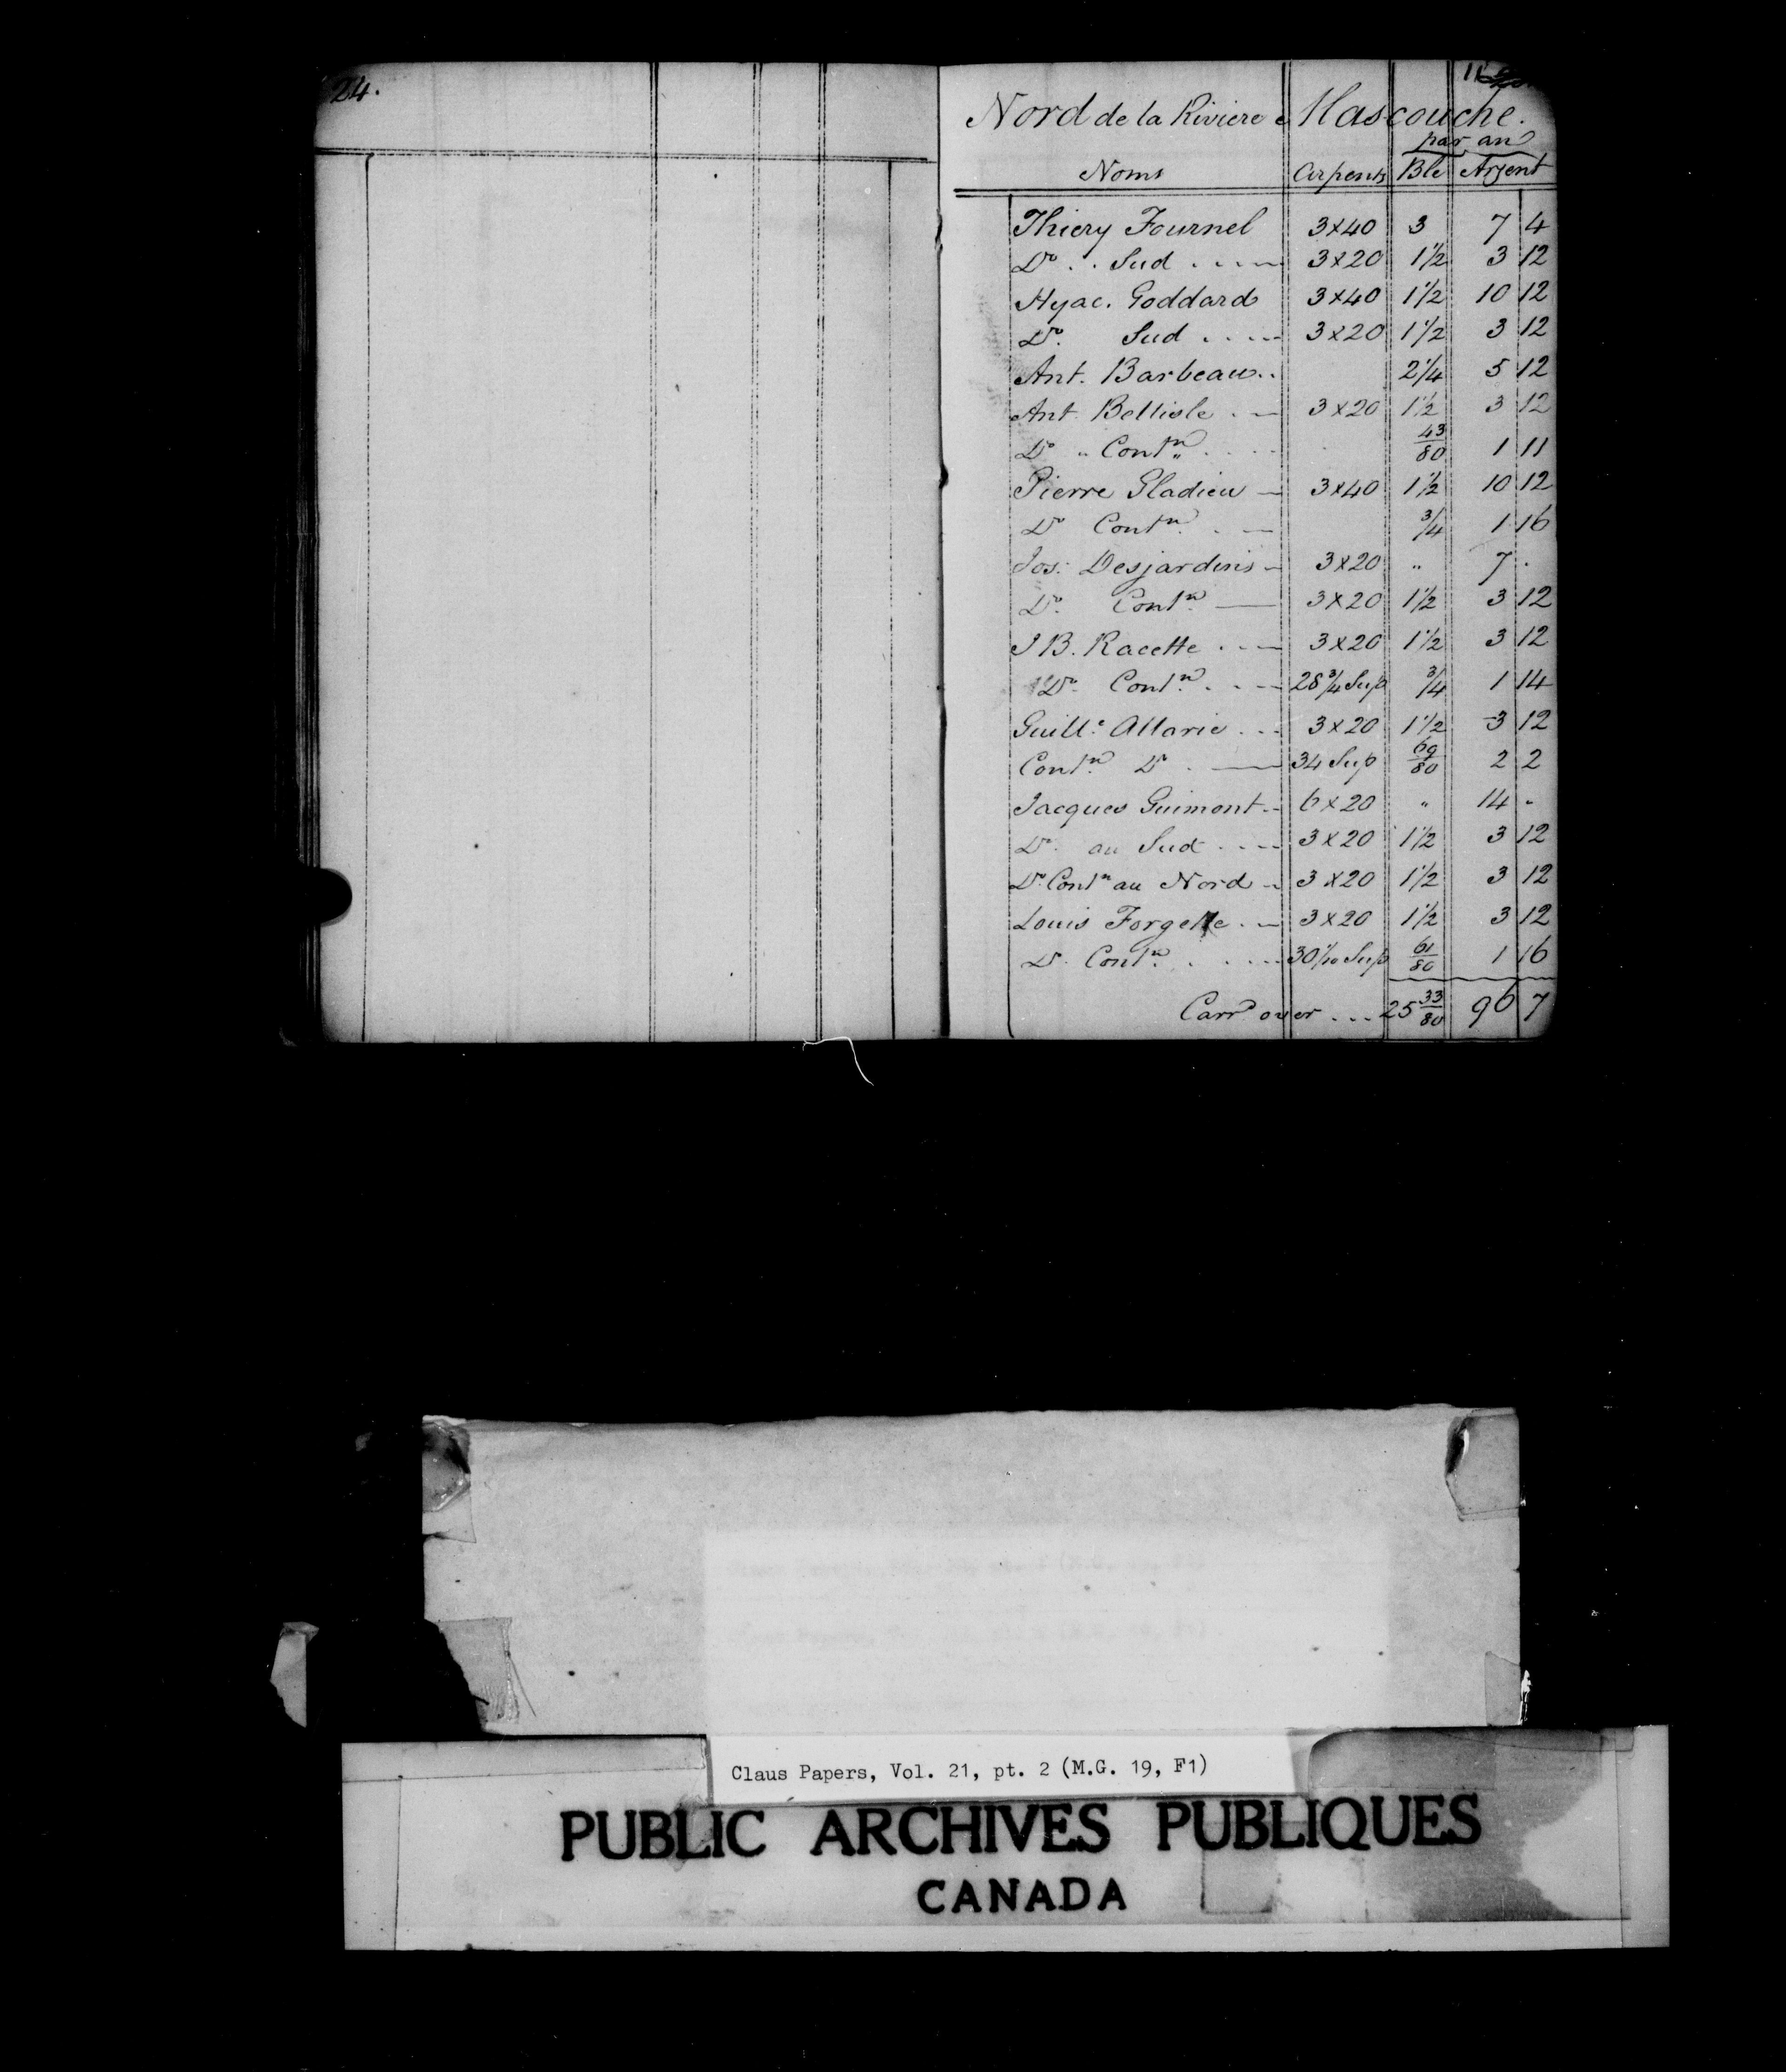 24.
11
Nord de la Riviere Mascouche.
par an
Noms Arpents Blé Argent
Thiery Fournel 3x40 3 7 4
Do. . Sud . . . . 3x20 1 1/2 3 12
Hyac. Goddard 3x40 1 1/2 10 12
Do. Sud . . . . 3x20 1 1/2 3 12
Ant. Barbeau . . 2 1/4 5 12
Ant. Bellisle . — 3x20 1 1/2 3 12
Do " Contn . . . . 43/80 1 11
Pierre Gladieu — 3x40 1 1/2 10 12
Do Contn . — 3/4 1 16
Jos: Desjardins — 3x20 " 7 .
Do. Contn — 3x20 1 1/2 3 12
J B. Racette . . — 3x20 1 1/2 3 12
Do. Contn . . . — 28 3/4 Sup 3/4 1 14
Guille Allarie . . . 3x20 1 1/2 3 12
Contn Do . — 34 Sup 69/80 2 2
Jacques Guimont . . 6x20 " 14 "
Do. au Sud . . . . 3x20 1 1/2 3 12
Do. Contn au Nord . 3x20 1 1/2 3 12
Louis Forgette . — 3x20 1 1/2 3 12
Do. Contn . . . . 30 1/10 Sup 61/80 1 16
Carrd over . . . 25 33/80 96 7
Claus Papers, Vol. 21, pt. 2 (M.G. 19, F1)
PUBLIC ARCHIVES PUBLIQUES
CANADA